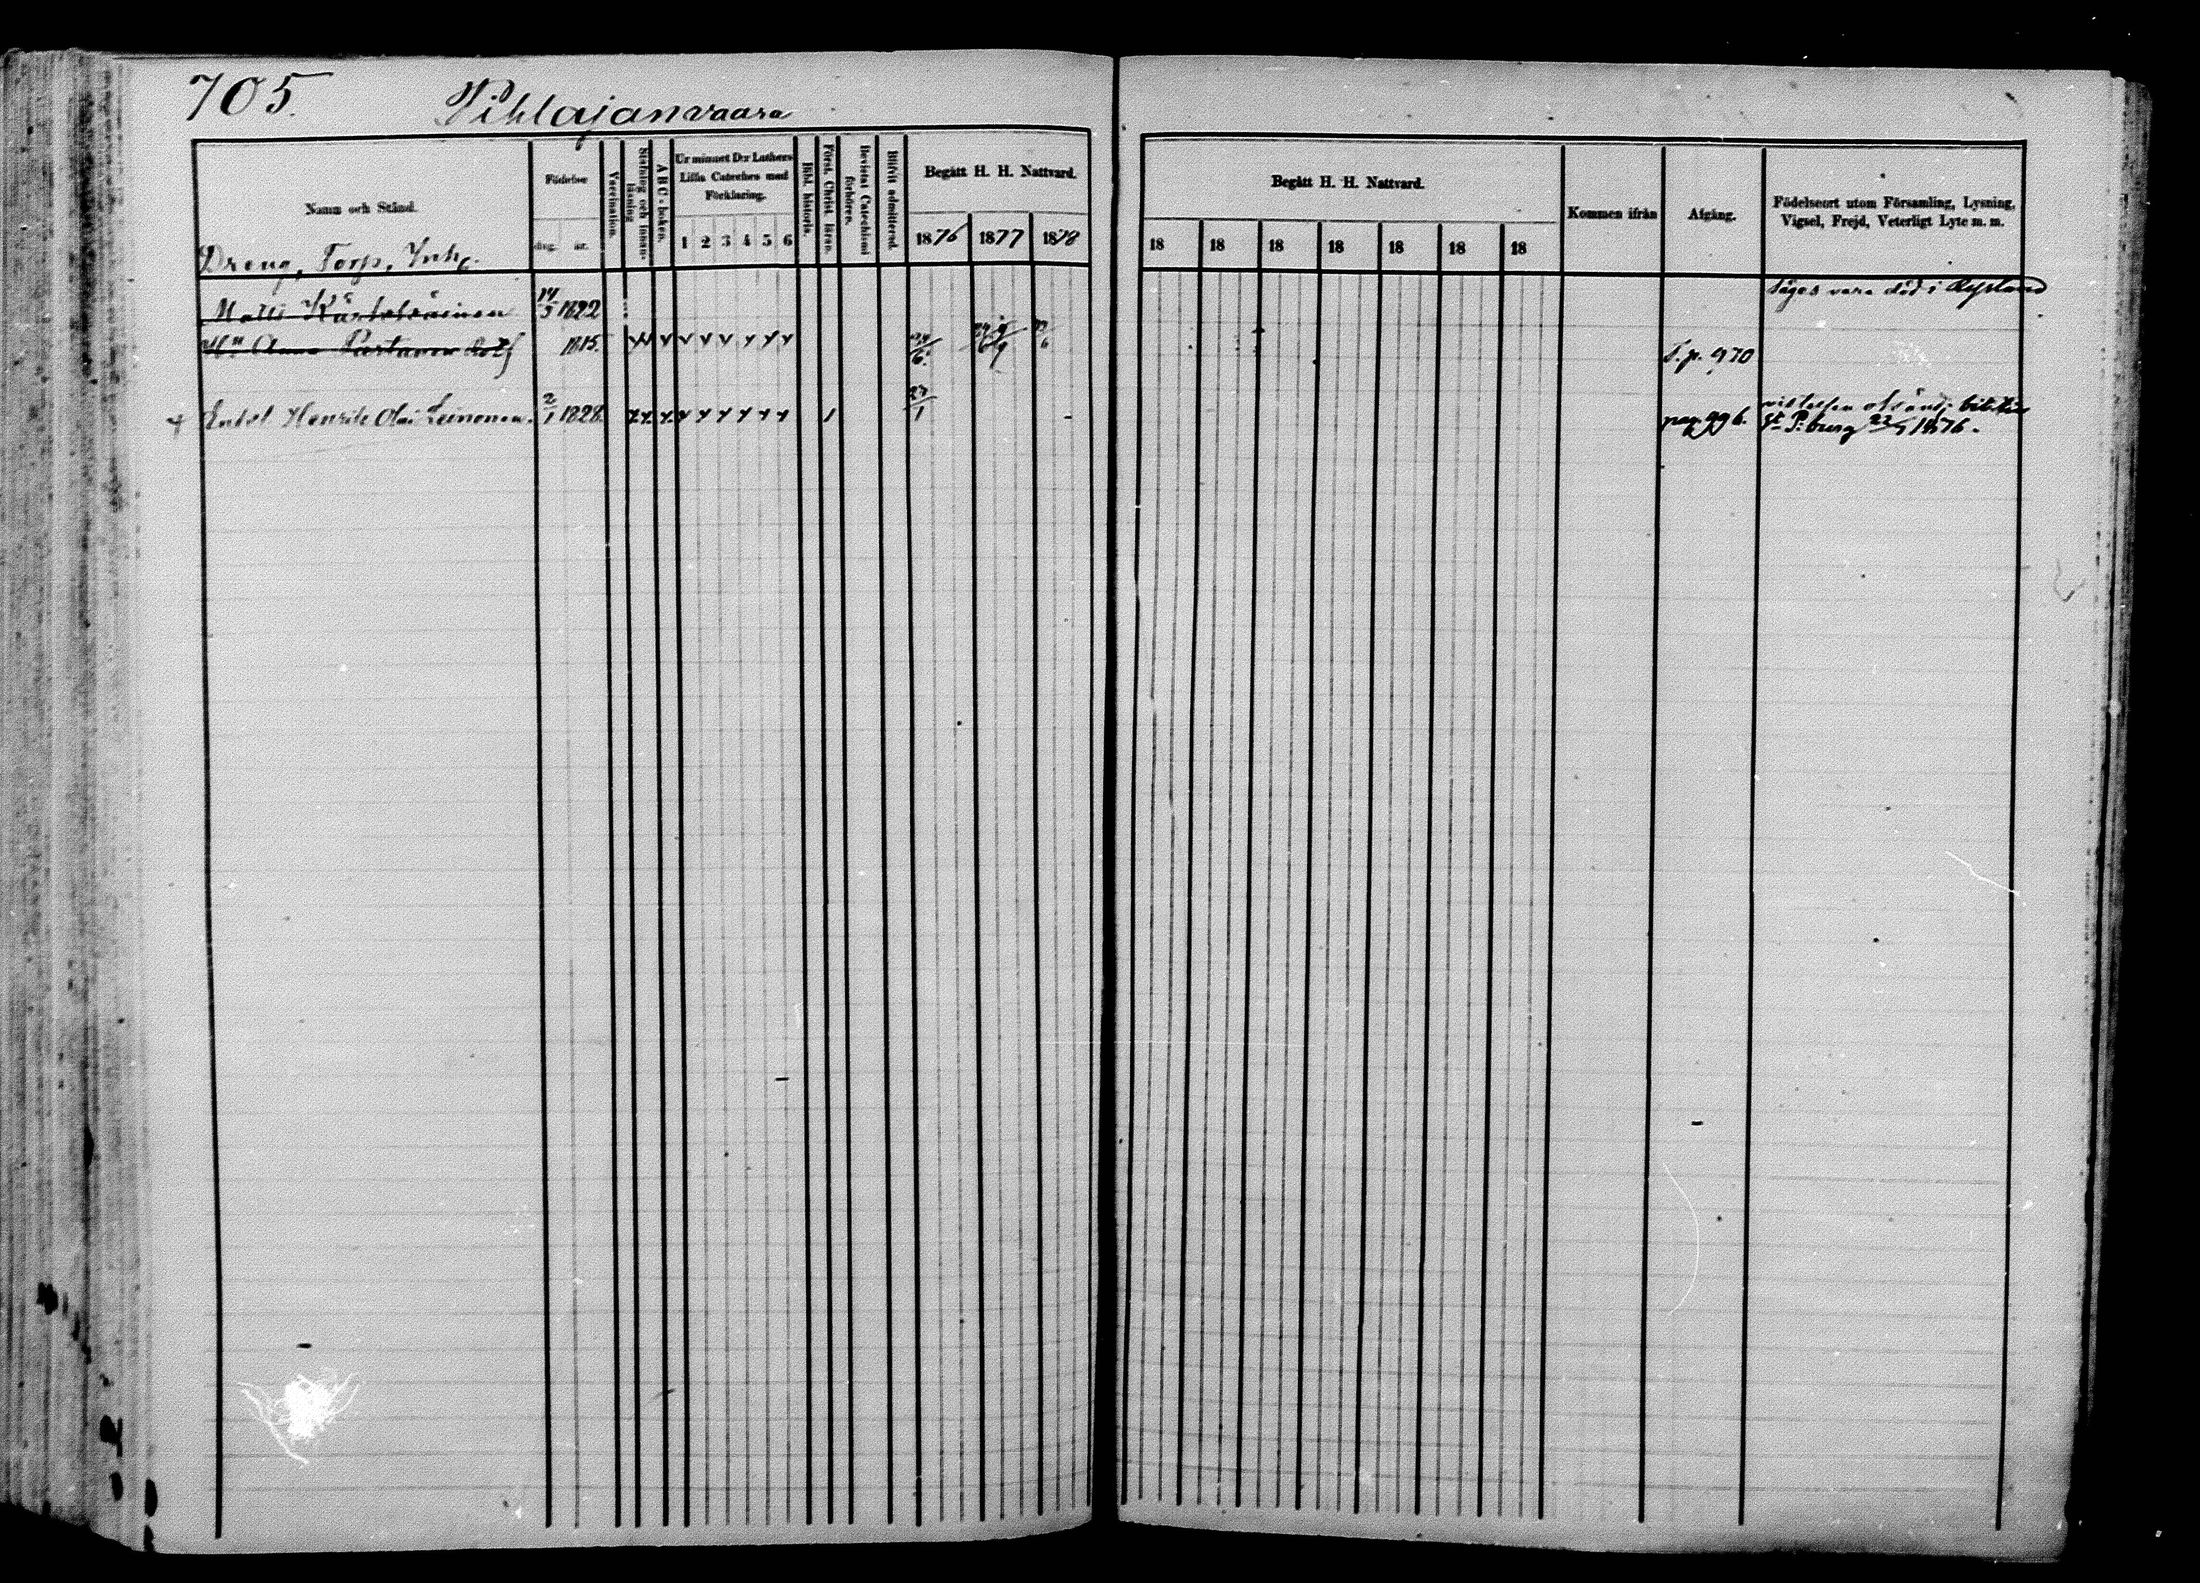 705.
Pihlajanvaara
Namn och Stånd.
Födelse
dag. år.
Vaccination.
Stafning och Innanläsning
A B C - boken.
Ur minnet D:r Luthers Lilla Cateches med Förklaring.
1 2 3 4 5 6
Bibl. historia.
Först. Christ. läran.
Bevistat Catechismi förhören.
Blifvit admitterad.
Begått H. H. Nattvard.
1876 1877 1878
Begått H. H. Nattvard.
18 18 18 18 18 18 18
Kommen ifrån
Afgång.
Födelseort utom Församling, Lysning, Vigsel, Frejd, Veterligt Lyte m. m.
Dreng, Torp, Inh.
Matts 14/3 1822 Säges vara död i Ryssland
Anna Partanen 1815. T. p. 970
Enkl Henrik Leinonen. 2/1 1828. 27/1 pag 996.
St P:burg 22/9 1876.